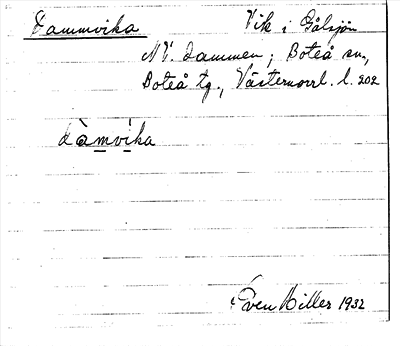 Dammvika Vik i Gålsjön
NV. Dammen; Boteå sn.,
Boteå tg., Västernorrl. l. 202
dàmvika
Sven Hiller 1932